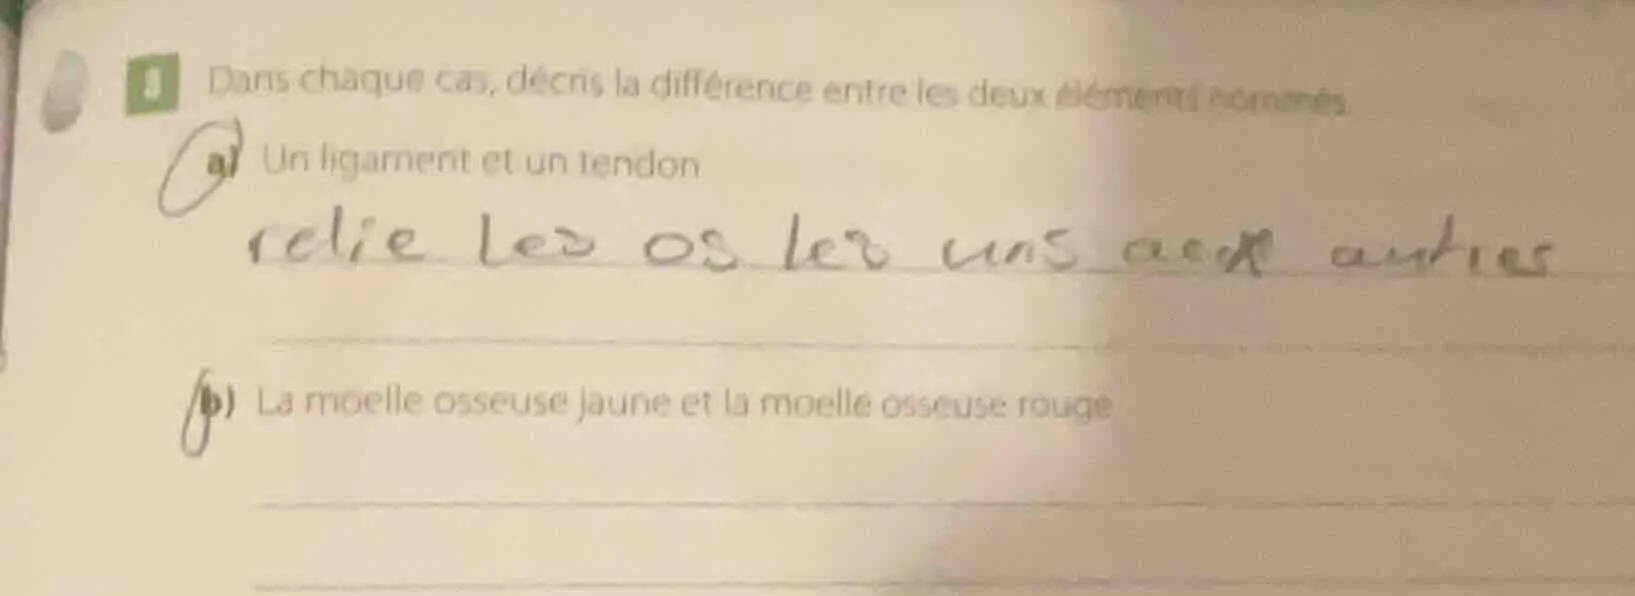 3 Dans chaque cas, décris la différence entre les deux éléments nommés.
a) Un ligament et un tendon
relie les os les uns aux autres
b) La moelle osseuse jaune et la moelle osseuse rouge